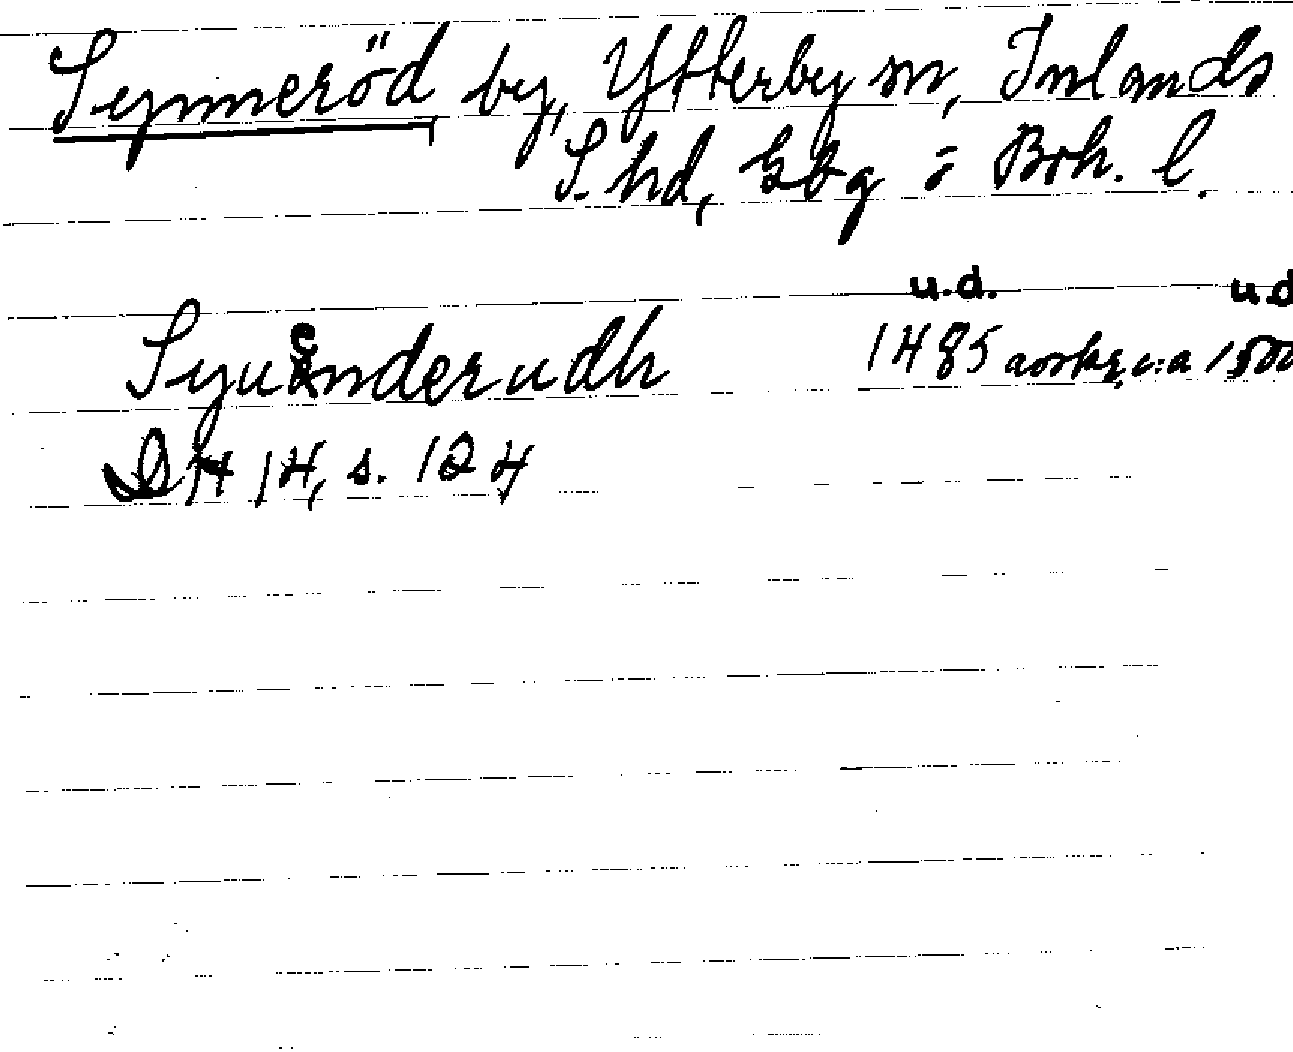 Synneröd by, Ytterby sn, Inlands
S. hd, Gbg o Boh. l.
u.d. u.d
Syuenderudh 1485 avskr, c:a 1500
DN 14, s. 124